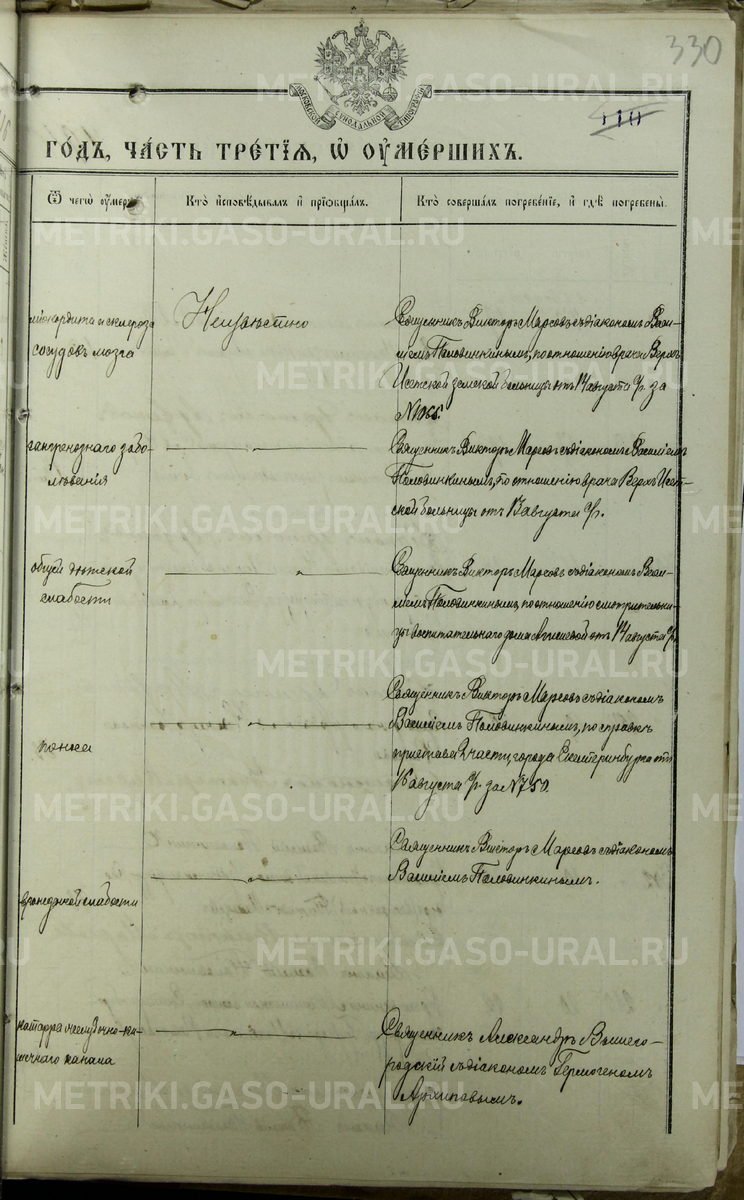 330
110
ГОДЪ, ЧАСТЬ ТРЕТІЯ, Ѿ ОУМЕРШИХЪ.
Ѿ чегѡ оумеръ.
Кто исповѣдывалъ и пріобщалъ.
Кто совершалъ погребеніе, и гдѣ погребены.
міокардита и склероза
сосудовъ мозга
Неизвѣстно
Священникъ Викторъ Марсовъ съ діакономъ Васи-
ліемъ Половинкинымъ, по отношенію врача Верхъ
Исетской земской больницы отъ 14 августа с/г. за
гангренознаго забо-
лѣванія
Священникъ Викторъ Марсовъ съ діакономъ Василіемъ
Половинкинымъ, по отношенію врача Верхъ Исет-
ской больницы отъ 13 августа с/г.
общей дѣтской
слабости
Священникъ Викторъ Марсовъ съ діакономъ Васи-
ліемъ Половинкинымъ, по отношенію смотрительни-
цы воспитательнаго дома отъ 14 августа с/г.
поноса
Священникъ Викторъ Марсовъ съ діакономъ
Василіемъ Половинкинымъ, по справкѣ
пристава 2 части города Екатеринбурга отъ
16 августа с/г. за № 750.
врожденной слабости
Священникъ Викторъ Марсовъ съ діакономъ
Василіемъ Половинкинымъ.
катарра желудочно-ки-
шечнаго канала
Священникъ Александръ Вышего-
родскій съ діакономъ Гермогеномъ
Архиповымъ.
METRIKI.GASO-URAL.RU